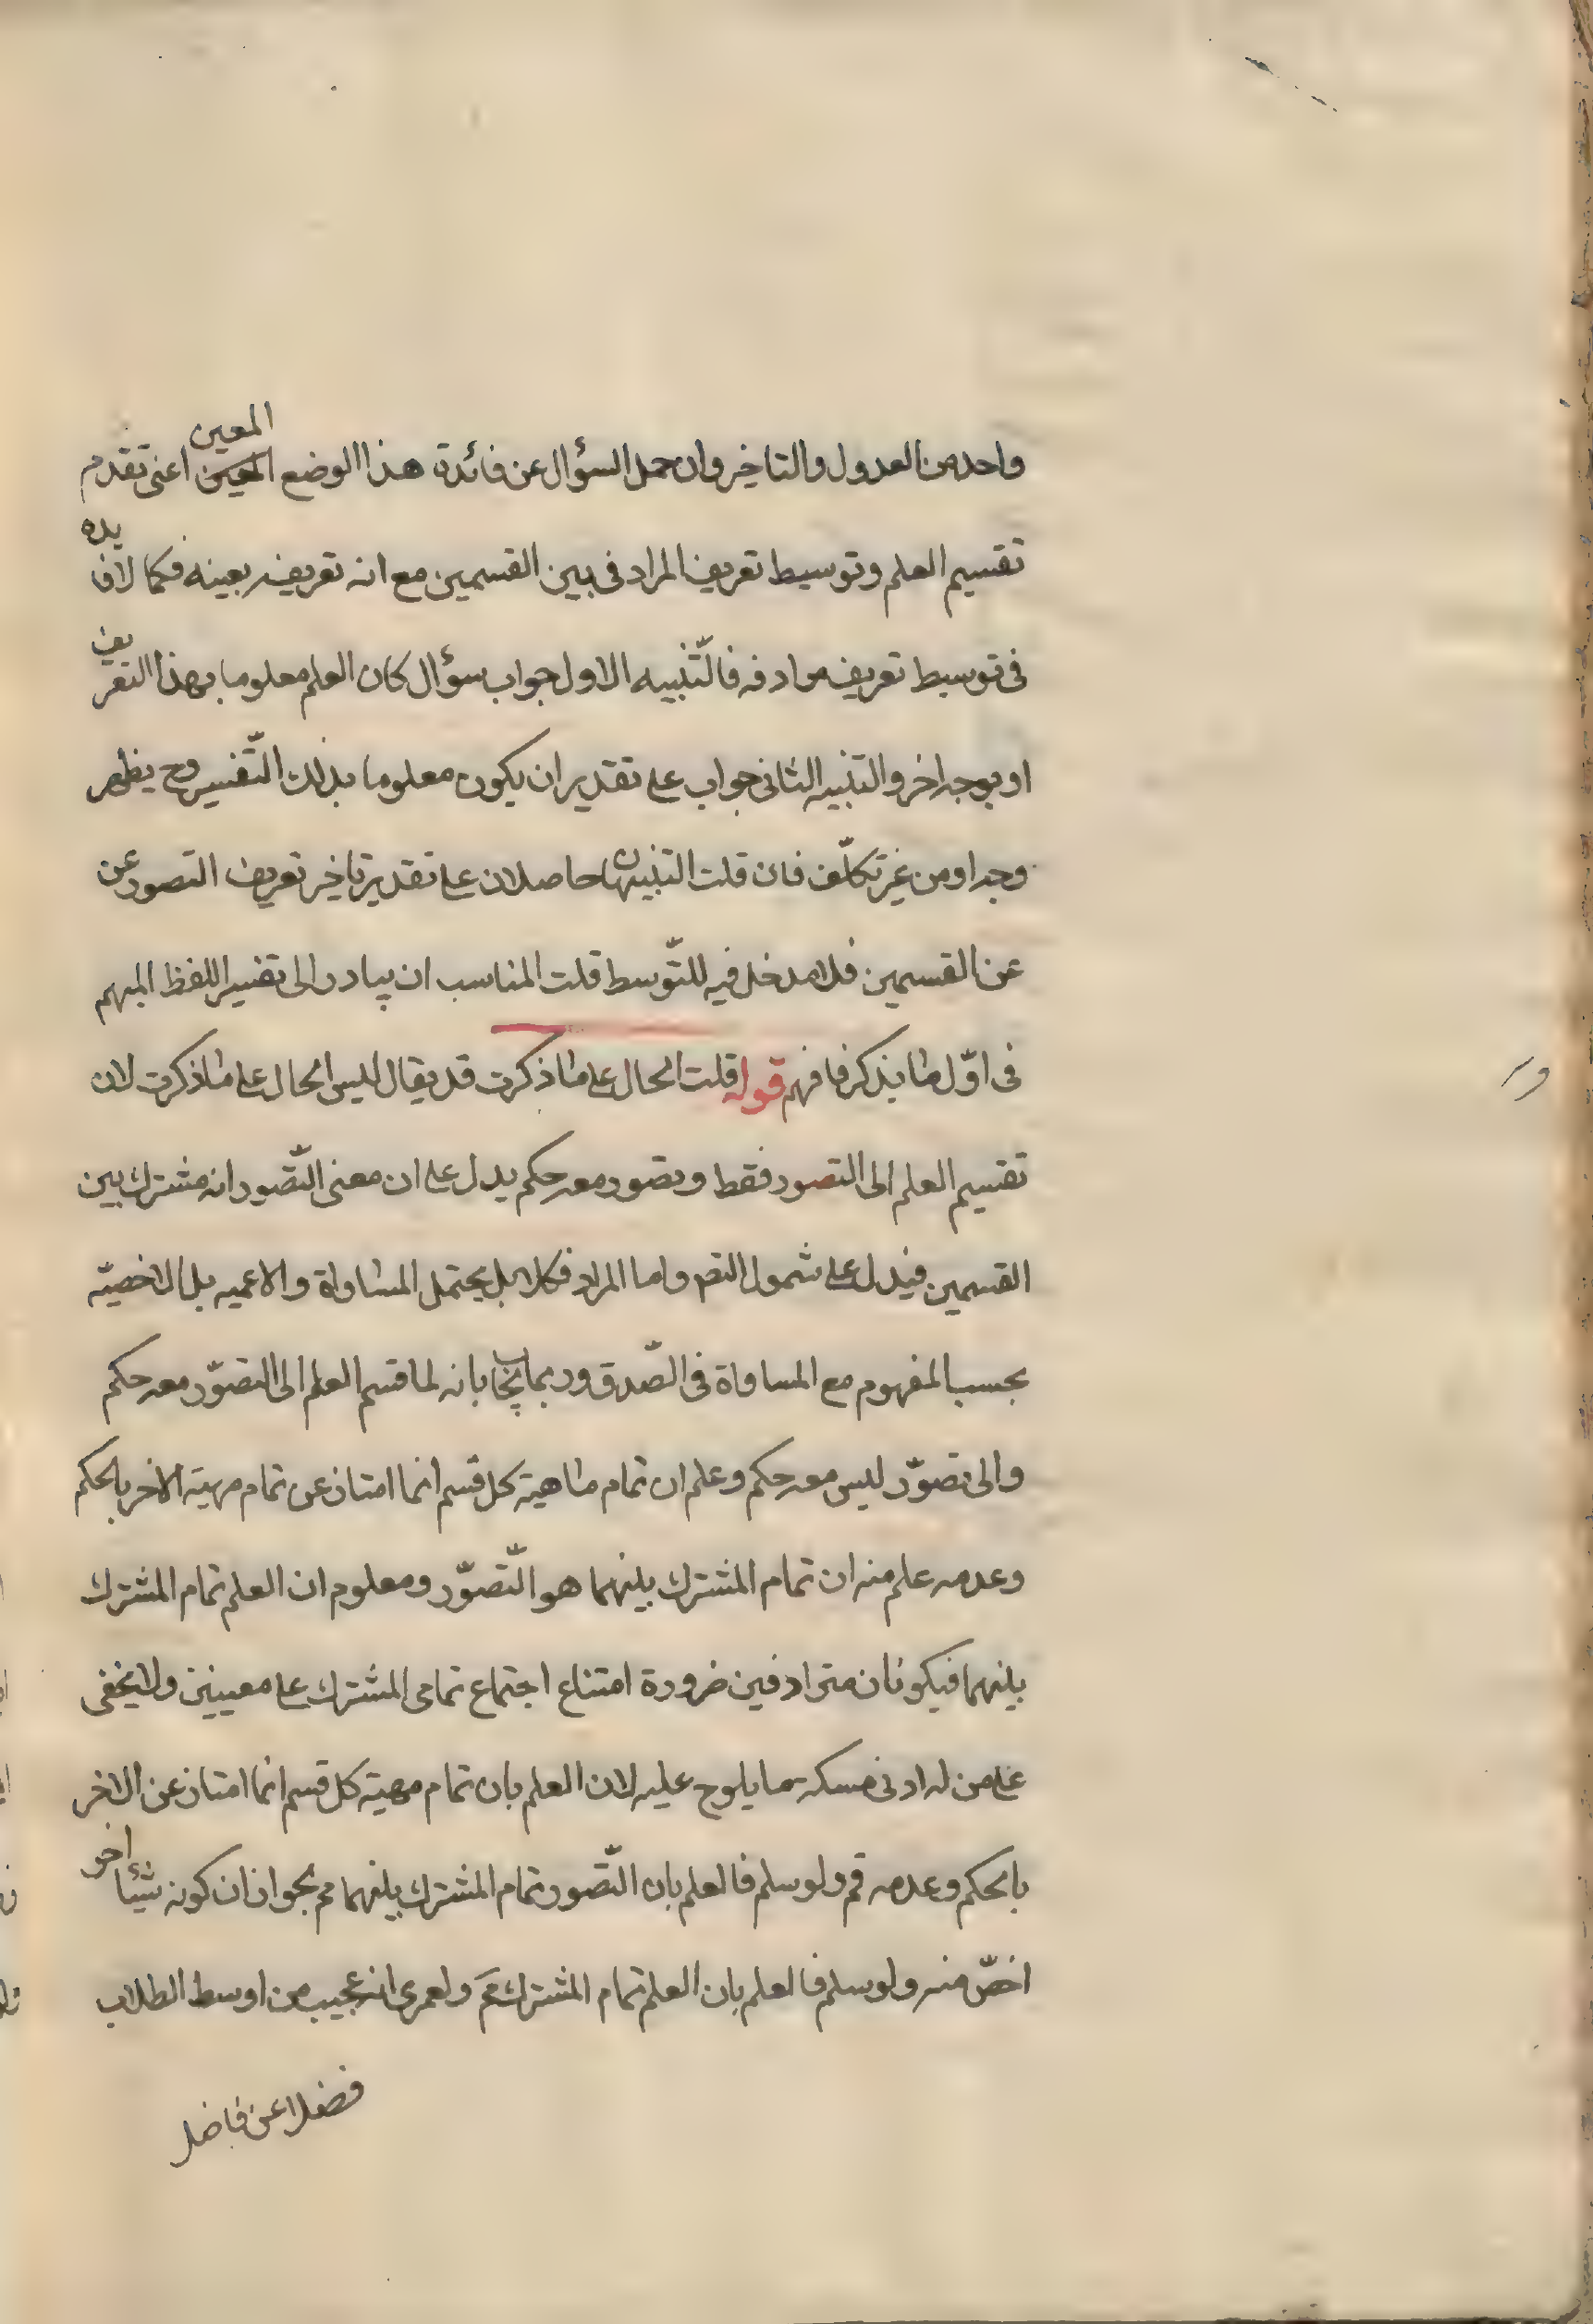 واحد من العدول والتاخير وان حمل السؤال عن فائدة هذا الوضع المعين اعنى تقدم
تقسيم العلم وتوسيط تعريف المرادف بين القسمين مع انه تعريفه بعينه فكما لافايده
فى توسيط تعريف مرادفه فالتّنبيه الاول جواب سؤال كان العلم معلوما بهذا التعريف
او بوجه اخر والتنبيه الثانى جواب على تقدير ان يكون معلوما بذلك التّفسير وح يظهر
وجه او من غير تكلّف فان قلت التنبيهان حاصلان على تقدير تاخير تعريف التصور عن
عن القسمين فلا مدخل فيه للتّوسط قلت المناسب ان يبادر الى تفسير اللفظ المبهم
فى اوّل ما يذكر فافهم قوله قلت الحال على ما ذكرت قد يقال ليس الحال على ما ذكرت لان
تقسيم العلم الى التصور فقط وتصور معه حكم يدل على ان معنى التّصور انه مشترك بين
القسمين فيدل على شمول التصور واما المرادف فكلا بل يحتمل المساواة والاعميه بل الاخصيّه
بحسب المفهوم مع المساواة فى الصّدق وربما يجاب بانه لما قسم العلم الى التصوّر معه حكم
والى تصوّر ليس معه حكم وعلم ان تمام ماهية كل قسم انما امتاز عن تمام مهية الاخر بالحكم
وعدمه علم منه ان تمام المشترك بينهما هو التّصوّر ومعلوم ان العلم تمام المشترك
بينهما فيكونان مترادفين ضرورة امتناع اجتماع تمامى المشترك على معينين ولا يخفى
على من له ادنى مسكه ما يلوح عليه لان العلم بان تمام مهية كل قسم انما امتاز عن الاخر
بالحكم وعدمه مم ولو سلم فالعلم بان التّصور تمام المشترك بينهما مم بجواز ان كونه شيئا اخر
اخصّ منه ولو سلم فالعلم بان العلم تمام المشترك مم ولعمرى انه عجيب من اوسط الطلاب
فضلا عن فاضل